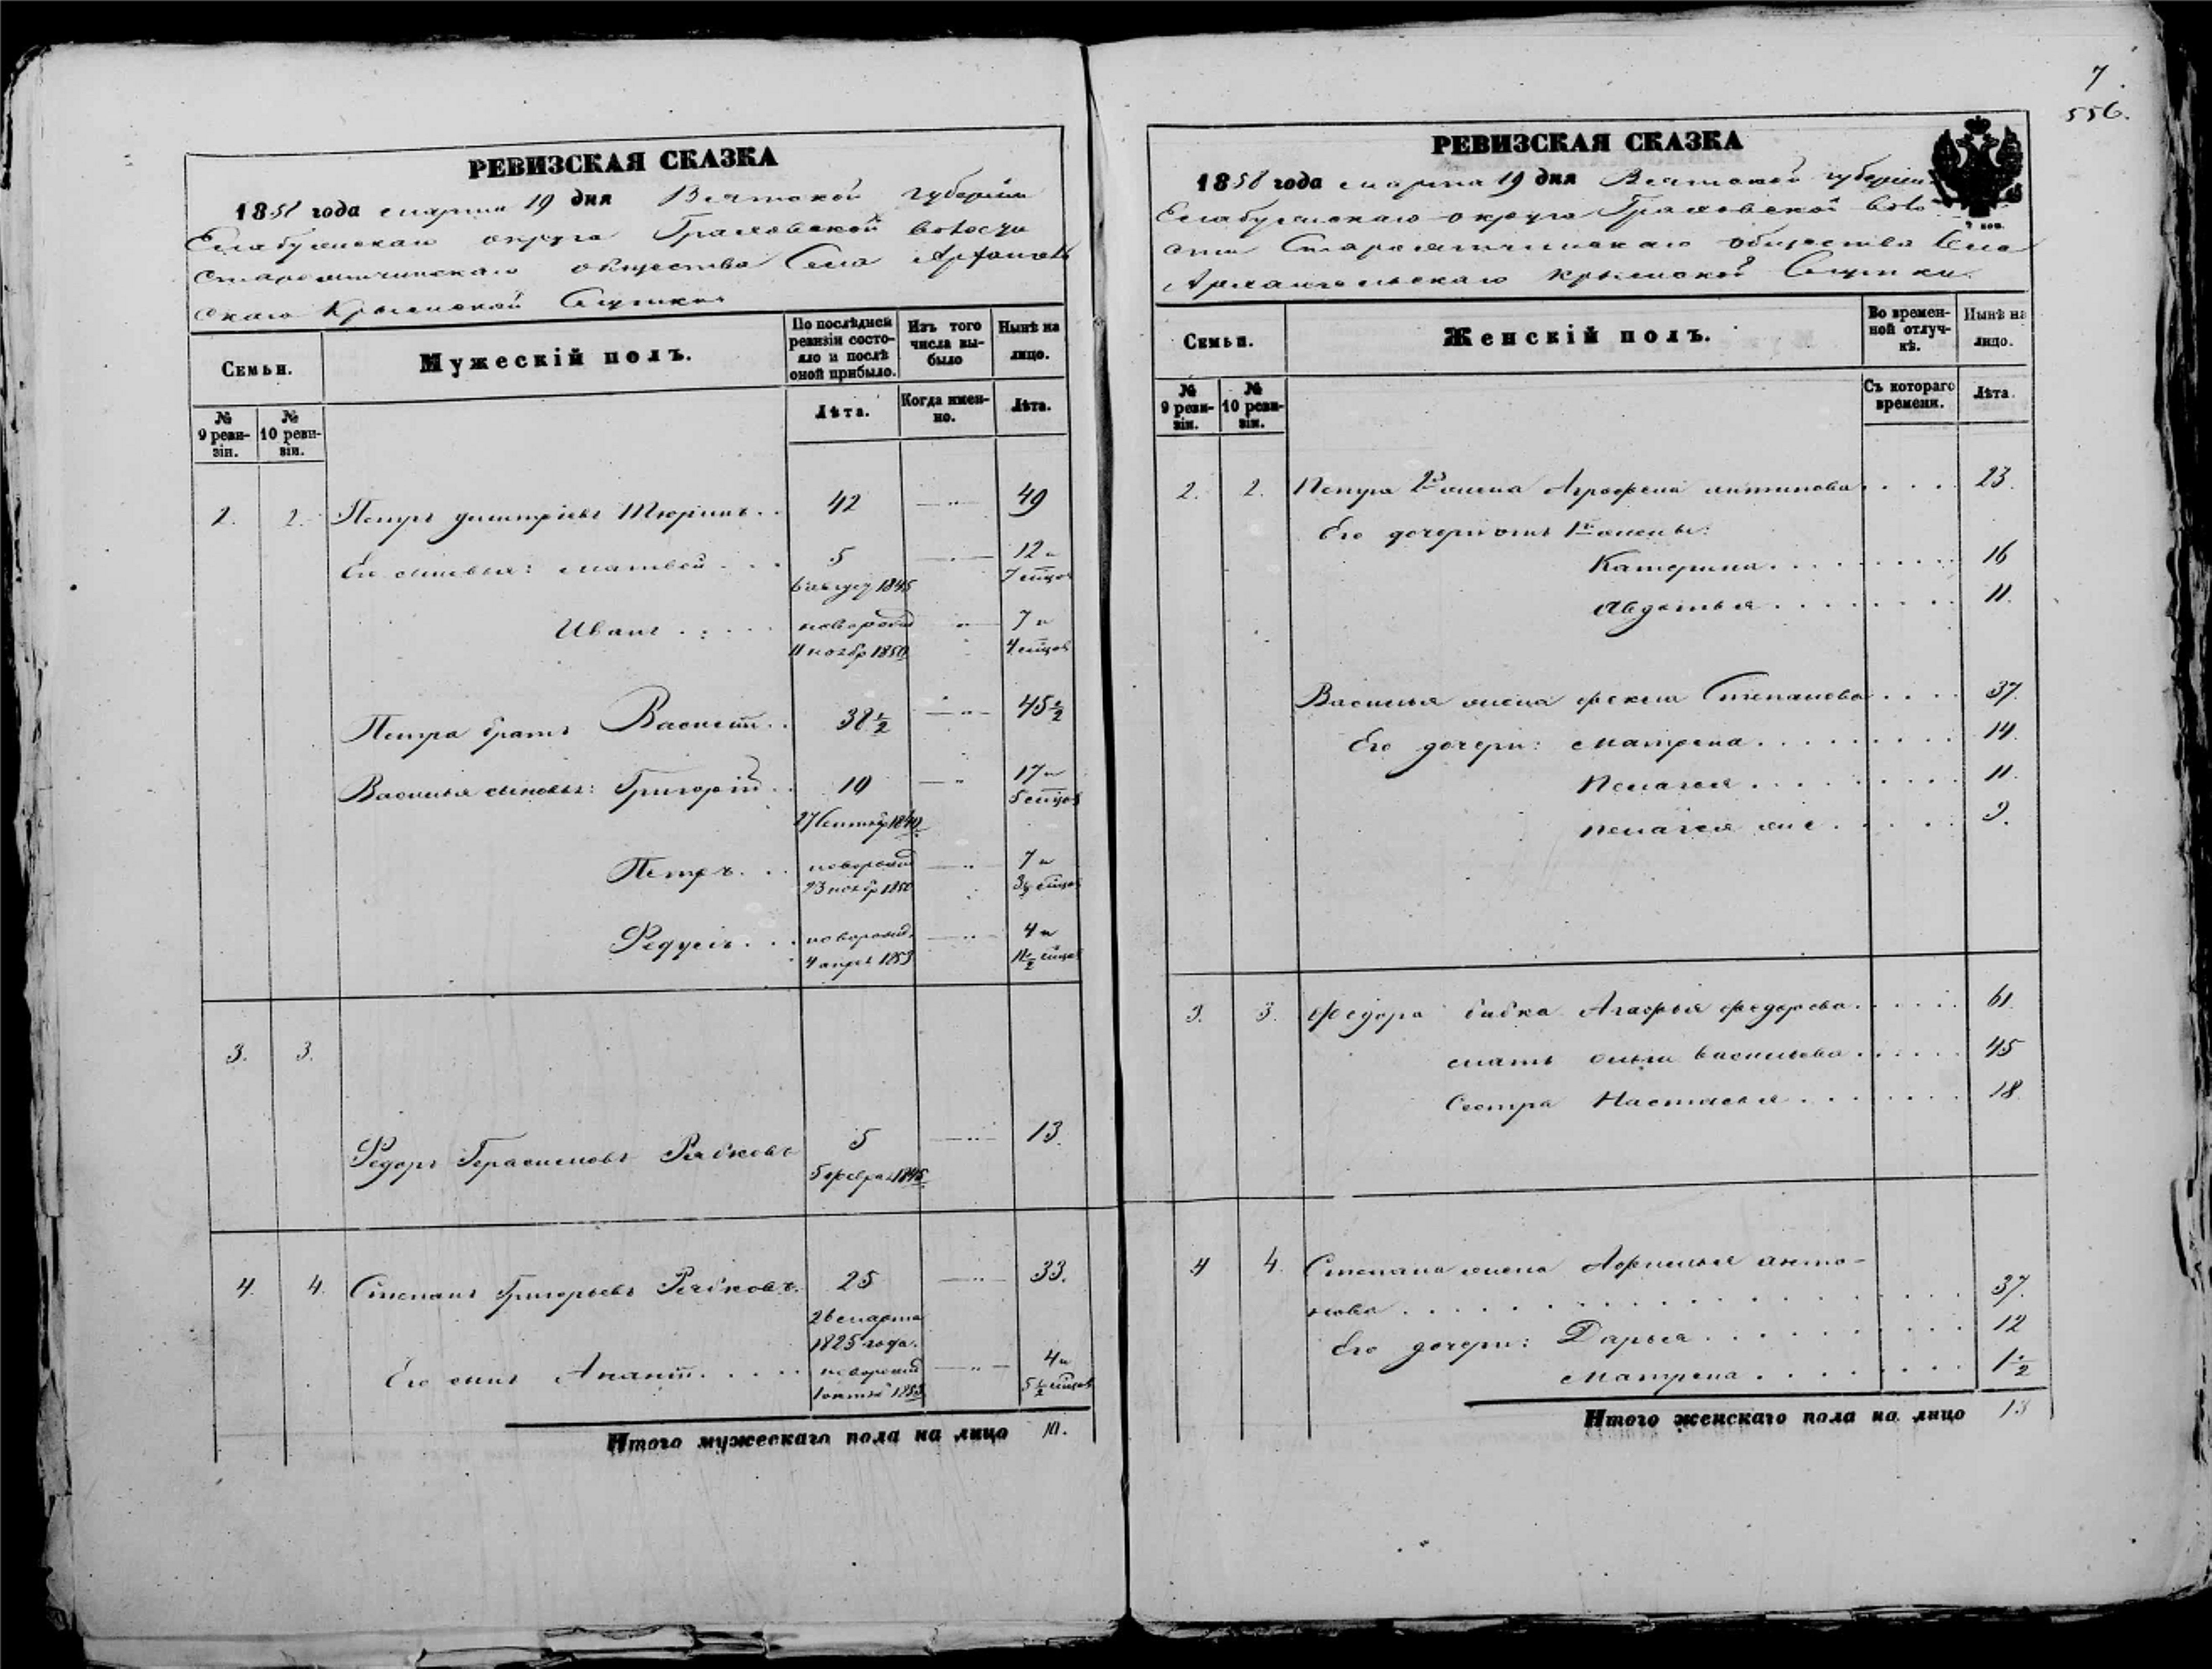 7.
556.
РЕВИЗСКАЯ СКАЗКА
1858 года марта 19 дня Вятской губернiи
Елабужскаго округа Граховской волости
общества Села Архангель
скаго Крымской Слутки
Семьи.
Мужескiй полъ.
По послѣдней ревизiи состояло и послѣ оной прибыло.
Изъ того числа выбыло
Нынѣ на лицо.
№ 9 ревизiи.
№ 10 ревизiи.
Лѣта.
Когда именно.
Лѣта.
2. 2. Петръ Дмитрiевъ Тюринъ . . 42 — " — 49
Его сыновья: Матвей . . . 5 12 и
6 август 1845 7 мцов
Иванъ . . . . новорожд " 7 и
11 ноябр 1850 4 мцов
Петра братъ Василiй . . 38 1/2 — " — 45 1/2
Василья сыновья: Григорiй . . 10 — " 17 и
27 Сентяб 1840 5 мцов
Петръ . . . новорожд — " — 7 и
23 ноябр 1850 3 1/2 мцов
Федулъ . . . новорожд. — " — 4 и
4 апрел 1853 11 1/2 мцов
3. 3.
Федоръ Герасимовъ Рябковъ 5 — " — 13.
5 феврал 1845
4. 4. Степанъ Григорьевъ Рябковъ. 25 — " — 33.
26 марта
1825 года.
Его сынъ Ананiй . . . . новорожд — " — 4 и
1 октяб 1853 5 1/2 мцов
Итого мужескаго пола на лицо 10.
РЕВИЗСКАЯ СКАЗКА
1858 года марта 19 дня Вятской губернiи
Елабужскаго округа Граховской воло
сти общества Села
Архангельскаго Крымской Слутки.
Семьи.
Женскiй полъ.
Во временной отлучкѣ.
Нынѣ на лицо.
№ 9 ревизiи.
№ 10 ревизiи.
Съ котораго времени.
Лѣта.
2. 2. Петра 2я жена Аграфена Антипова . . . . 23.
Его дочери отъ 1й жены:
Катерина . . . . . . . . . 16
Авдотья . . . . . . . . 11.
Василья жена Фекла Степанова . . . . 37.
Его дочери: Матрена . . . . . . . . . 14.
Пелагея . . . . . . . . . 11.
Пелагея же . . . . . 9.
3. 3. Федора бабка Агафья Федорова . . . . . . 61.
мать Ольга Васильева . . . . . . 45
Сестра Настасья . . . . . . . . 18
4 4. Степана жена Афимья Анто-
нова . . . . . . . . . . . . . . . . 37.
Его дочери: Дарья . . . . . . . . . . 12
Матрена . . . . . . . . 1 1/2
Итого женскаго пола на лицо 13